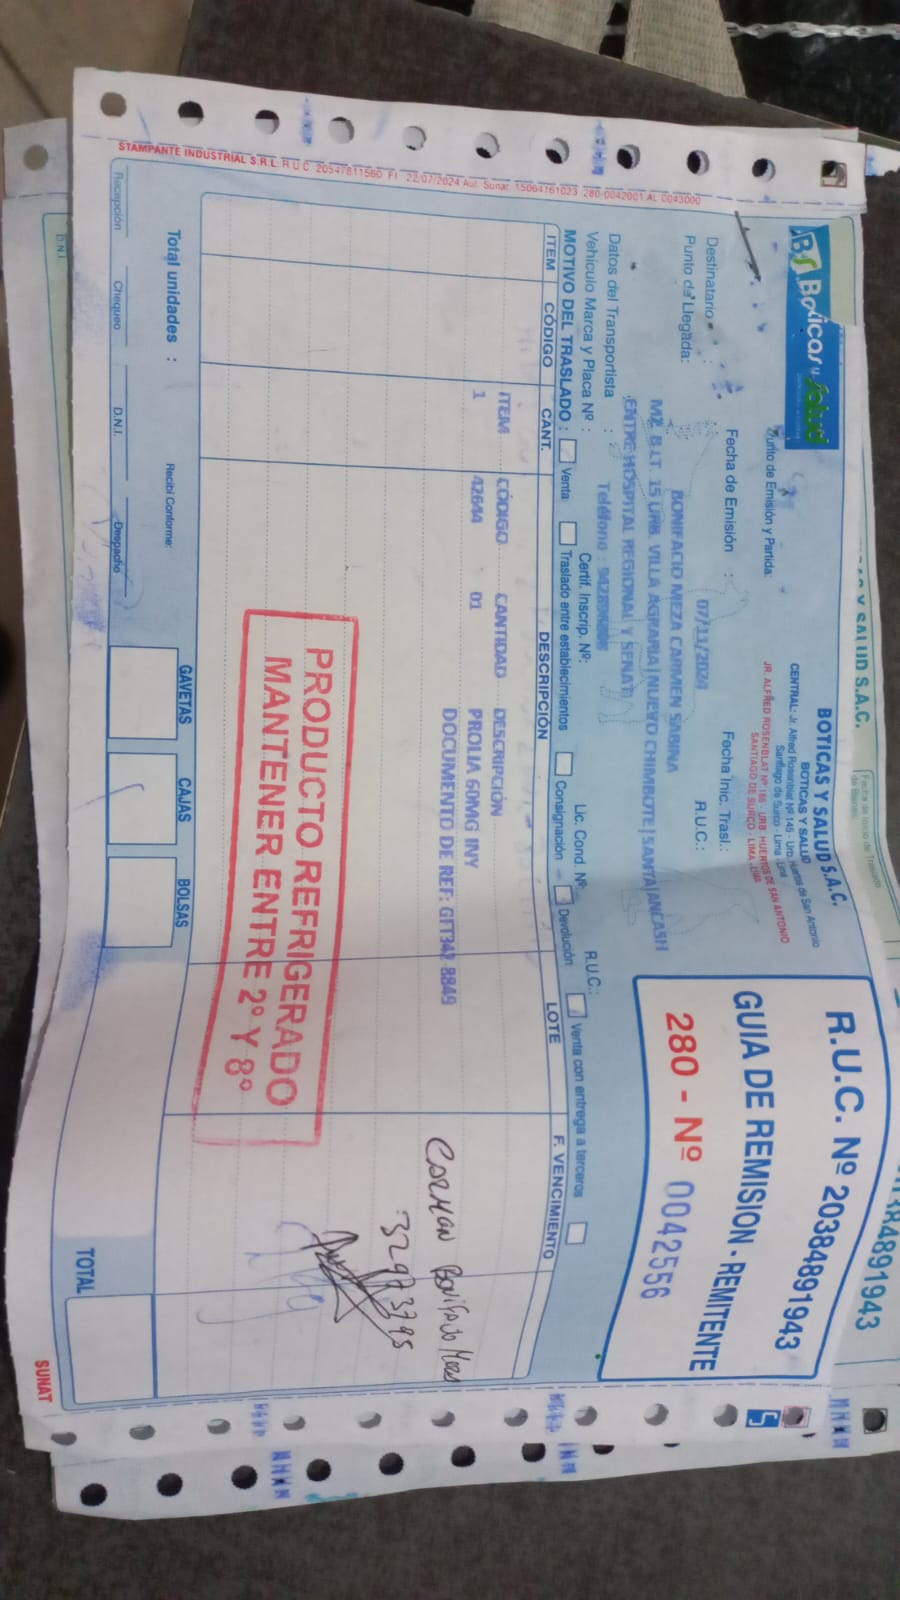 BS Boticas y Salud
BOTICAS Y SALUD S.A.C.
BOTICAS Y SALUD
CENTRAL: Jr. Alfred Rosenblat Nº 145 - Urb. Huertos de San Antonio
Santiago de Surco - Lima - Lima
Punto de Emisión y Partida:
JR. ALFRED ROSENBLAT Nº 166 - URB. HUERTOS DE SAN ANTONIO
SANTIAGO DE SURCO - LIMA - LIMA
R.U.C. Nº 20384891943
GUIA DE REMISION - REMITENTE
280 - Nº 0042556
Fecha de Emisión : 07/11/2024
Fecha Inic. Trasl.:
Destinatario : BONIFACIO MEZA CARMEN SABINA
R.U.C.:
Punto de Llegada: MZ. B LT. 15 URB. VILLA AGRARIA|NUEVO CHIMBOTE|SANTA|ANCASH
ENTRE HOSPITAL REGIONAL Y SENATI
Datos del Transportista :
R.U.C.:
Vehículo Marca y Placa Nº :
Certif. Inscrip. Nº:
Lic. Cond Nº:
MOTIVO DEL TRASLADO : Venta Traslado entre establecimientos Consignación Devolución Venta con entrega a terceros
ITEM CÓDIGO CANT. DESCRIPCIÓN LOTE F. VENCIMIENTO
ITEM CÓDIGO CANTIDAD DESCRIPCIÓN
1 42644 01 PROLIA 60MG INY
DOCUMENTO DE REF: GTT342 8849
PRODUCTO REFRIGERADO
MANTENER ENTRE 2º Y 8º
Total unidades :
Recibí Conforme:
GAVETAS
CAJAS
BOLSAS
TOTAL
Recepción
Chequeo
D.N.I.
Despacho
SUNAT
STAMPANTE INDUSTRIAL S.R.L. R.U.C. 20547811560 FI. 22/07/2024 Aut. Sunat 15064161023 280-0042001 AL 0043000